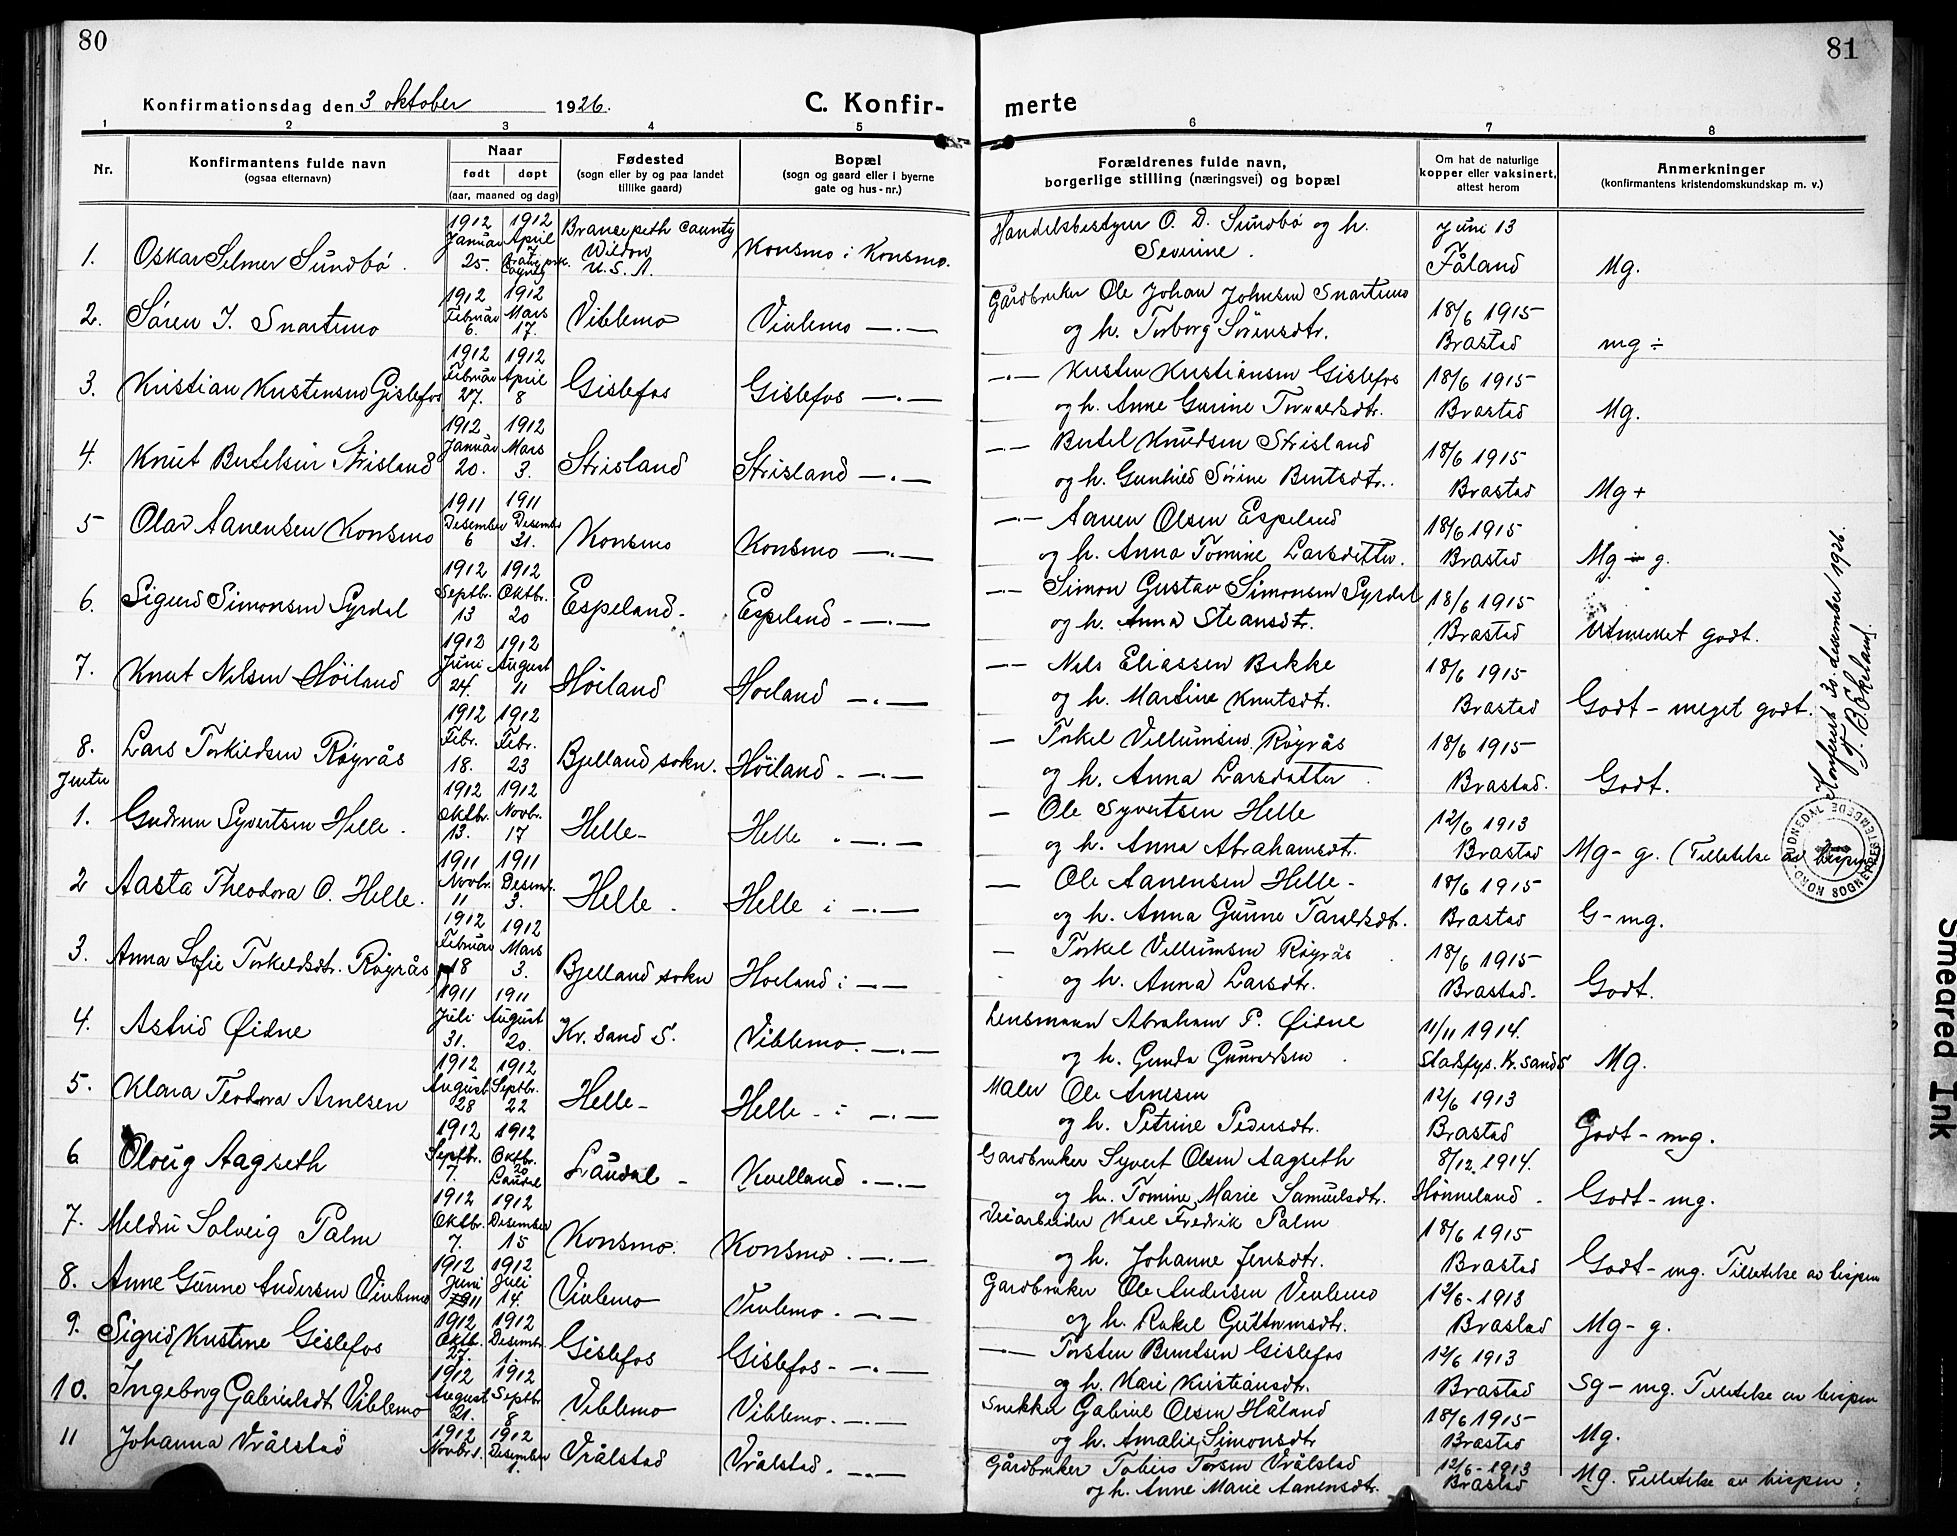 80
81
Konfirmationsdag den 3 oktober 1926.
C. Konfir-
merte
1 2 3 4 5 6 7 8
Nr.
Konfirmantens fulde navn
(ogsaa efternavn)
Naar
født døpt
(aar, maaned og dag)
Fødested
(sogn eller by og paa landet
tillike gaard)
Bopæl
(sogn og gaard eller i byerne
gate og hus-nr.)
Forældrenes fulde navn,
borgerlige stilling (næringsvei) og bopæl
Om hat de naturlige
kopper eller vaksinert,
attest herom
Anmerkninger
(konfirmantens kristendomskundskap m. v.)
1. Oskar Selmer Sundbø. 1912 Januar 25. 1912 April 7 County U.S.A. Konsmo i Konsmo. Handelsbestyrer O. D. Sundbø og h. Severine. Juni 13 Fåland Mg.
2. Søren J. Snartemo 1912 Februar 6. 1912 Mars 17. Viblemo Vivlemo —.— Gårdbruker Ole Johan Johnsen Snartemo og h. Torborg Sørensdtr. 18/6 1915 Brastad mg ÷
3. Kristian Kristensen Gislefos 1912 Februar 27. 1912 April 8 Gislefos Gislefos —.— —.— Kristen Kristiansen Gislefos og h. Anne Gurine Torvaldsdtr. 18/6 1915 Brastad Mg.
4. Knut Bertelsen Strisland 1912 Januar 20. 1912 Mars 3. Strisland Strisland —.— —.— Bertel Knudsen Strisland og h. Gunhild Sørine Berntsdtr. 18/6 1915 Brastad Mg +
5 Olav Aanensen Konsmo 1911 Desember 6 1911 Desember 31. Konsmo Konsmo —.— —.— Aanen Olsen Espeland og h. Anna Tomine Larsdatter. 18/6 1915 Brastad Mg - g.
6. Sigurd Simonsen Syrdal 1912 Septbr. 13 1912 Oktbr. 20 Espeland. Espeland - —.— —.— Simon Gustav Simonsen Syrdal og h. Anna Steansdtr. 18/6 1915 Brastad Utmerket godt.
7. Knut Nilsen Høiland 1912 Juni 24. 1912 August 11 Høiland Høiland —.— —.— Nils Eliassen Bakke og h. Martine Knutsdtr. 18/6 1915 Brastad Godt - meget godt.
8. Lars Torkildsen Røyrås 1912 Febr. 18. 1912 Febr. 23 Bjelland sokn. Høiland - —.— — Torkel Villumsen Røyrås og h. Anna Larsdatter. 18/6 1915 Brastad. Godt.
Jenter
1. Gudrun Syvertsen Helle. 1912 Oktbr. 13. 1912 Novbr. 17 Helle - Helle . —.— — Ole Syvertsen Helle og h. Anna Abrahamsdtr. 12/6 1913 Brastad Mg - g. (Tillatelse av bispen
2 Aasta Theodora O. Helle. 1911 Novbr. 11 1911 Desemb. 3. Helle . Helle i —.— — Ole Aanensen Helle - og h. Anna Gunne Taraldsdtr. 18/6 1915 Brastad G - mg.
3. Anna Sofie Torkeldsdtr. Røyrås 1912 Februar 18 1912 Mars 3. Bjelland sokn Høiland i —.— — Torkel Villumsen Røyrås og h. Anna Larsdtr. 18/6 1915 Brastad. Godt.
4. Astrid Øidne 1911 Juli 31. 1911 August 20. Kr. sand S. Viblemo. —.— Lensmann Abraham P. Øidne og h. Gunda Gunvaldsen 11/11 1914. Stadsfys. Kr. sand S Mg.
5. Klara Teodora Arnesen 1912 August 28 1912 Septbr. 22 Helle - Helle - i —.— Maler Ole Arnesen og h. Petrine Pedersdtr. 12/6 1913 Brastad Godt - mg.
6 Oloug Aagseth 1912 Septbr. 7. 1912 Oktbr. 20 Laudal Laudal - Kvelland . —.— Gardbruker Syvert Olsen Aagseth og h. Tomine Marie Samuelsdtr. 8/12. 1914. Hønneland . Godt - mg.
7. Meldri Solveig Palm 1912 Oktbr. 7. 1912 Desember 15 Konsmo. Konsmo . —.— Veiarbeider Karl Fredrik Palm og h. Johanne Jensdtr. 18/6 1915 Brastad Godt - mg. Tillatelse av bispen
8. Anne Gunne Andersen Vivlemo 1912 Juni 1912 Juli 14. Vivlemo Vivlemo. —.— Gardbruker Ole Andersen Vivlemo og h. Rakel Guttormsdtr. 12/6 - 1913 Brastad Mg - g.
9. Sigrid Kristine Gislefos 1912 Oktb. 27. 1912 Desembr. 1. Gislefos Gislefos - —.— —.— Torsten Berntsen Gislefos og h. Mari Kristiansdtr. 12/6 1913 Brastad Sg - mg. Tillatelse av bispen
10. Ingeborg Gabrielsdt Viblemo 1912 August 21. 1912 Septbr 8 Viblemo Viblemo. —.— Snekker Gabriel Olsen Håland og h. Amalie Simonsdtr 18/6 1915 Brastad Mg.
11 Johanna Vrålstad 1912 Novbr 1. 1912 Desember 1. Vrålstad Vrålstad. —.— Gårdbruker Tobias Torsen Vrålstad og h. Anne Marie Aanensdtr. 12/6 - 1913 Brastad Mg. Tillatelse av bispen
Konferert 30 desember 1926.
F. B. Ekeland.
NORD-AUDNEDAL SOGNEPRESTEMBEDE
Smeared Ink